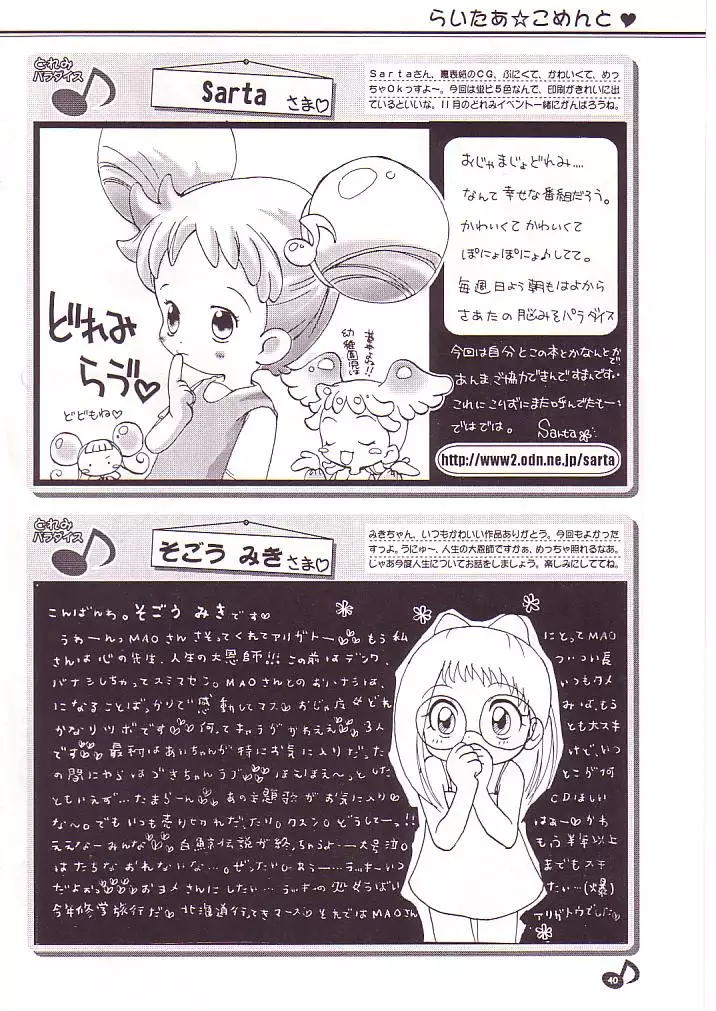 らいたあ☆こめんと♥
どれみ
パラダイス
Sarta さま♡
Sartaさん、裏表紙のCG、ぷにくて、かわいくて、めっ
ちゃOkっすよ〜。今回は蛍ピ5色なんで、印刷がきれいに出
ているといいな。11月のどれみイベント一緒にがんばろうね。
おじゃまじょどれみ....
なんて幸せな番組だろう。
かわいくて かわいくて
ぽにょぽにょ♪してて。
毎週日よう朝もはよから
さあたの脳みそパラダイス
どれみ
らヴ♡
どどもね♡
幼稚園児は
今回は自分とこの本とかなんとかで
あんまご協力できんですまんです..
これにこりずにまた呼んでたもー..
ではでは。 Sarta
http://www2.odn.ne.jp/sarta
どれみ
パラダイス
そごう みき さま♡
みきちゃん、いつもかわいい作品ありがとう。今回もよかった
すっよ。うにゅ〜、人生の大恩師ですかぁ、めっちゃ照れるなあ。
じゃあ今度人生についてお話をしましょう。楽しみにしててね。
こんばんわ。そごう みきです♡
うわーんっMAOさん さそってくれてアリガトー もう私にとってMAO
さんは心の先生、人生の大恩師!!! この前はデンワ、ついつい長
バナシしちゃってスミマセン。MAOさんとのおハナシは、いつもタメ
になることばっかりで感動してマス おジャ魔どれみは、もう
かなりツボです 何ってキャラがかわええ 3人とも大スキ
です 最初はあいちゃんが特にお気に入りだったけど、いつ
の間にやらはづきちゃんラブ ほえほえ〜っとしたとこが何
ともいえず…たまらーん あの主題歌がお気に入り♡CDほしい
な〜。でもいつも売りきれだったり。クスン。どうしてーっ!!はぁー♡かわ
ええなーみんな 白鯨伝説が終っちゃうよー大号泣。もう半年以上
はたちなおれないな…。ぜったいひぁぅー…ラッキーいつまでもスキ
だよぉぅ おヨメさんにしたい…ラッキーの処女うばいたい…(爆)
今年修学旅行だ♡ 北海道行ってきマース♡ それではMAOさんアリガトウでした♡
40